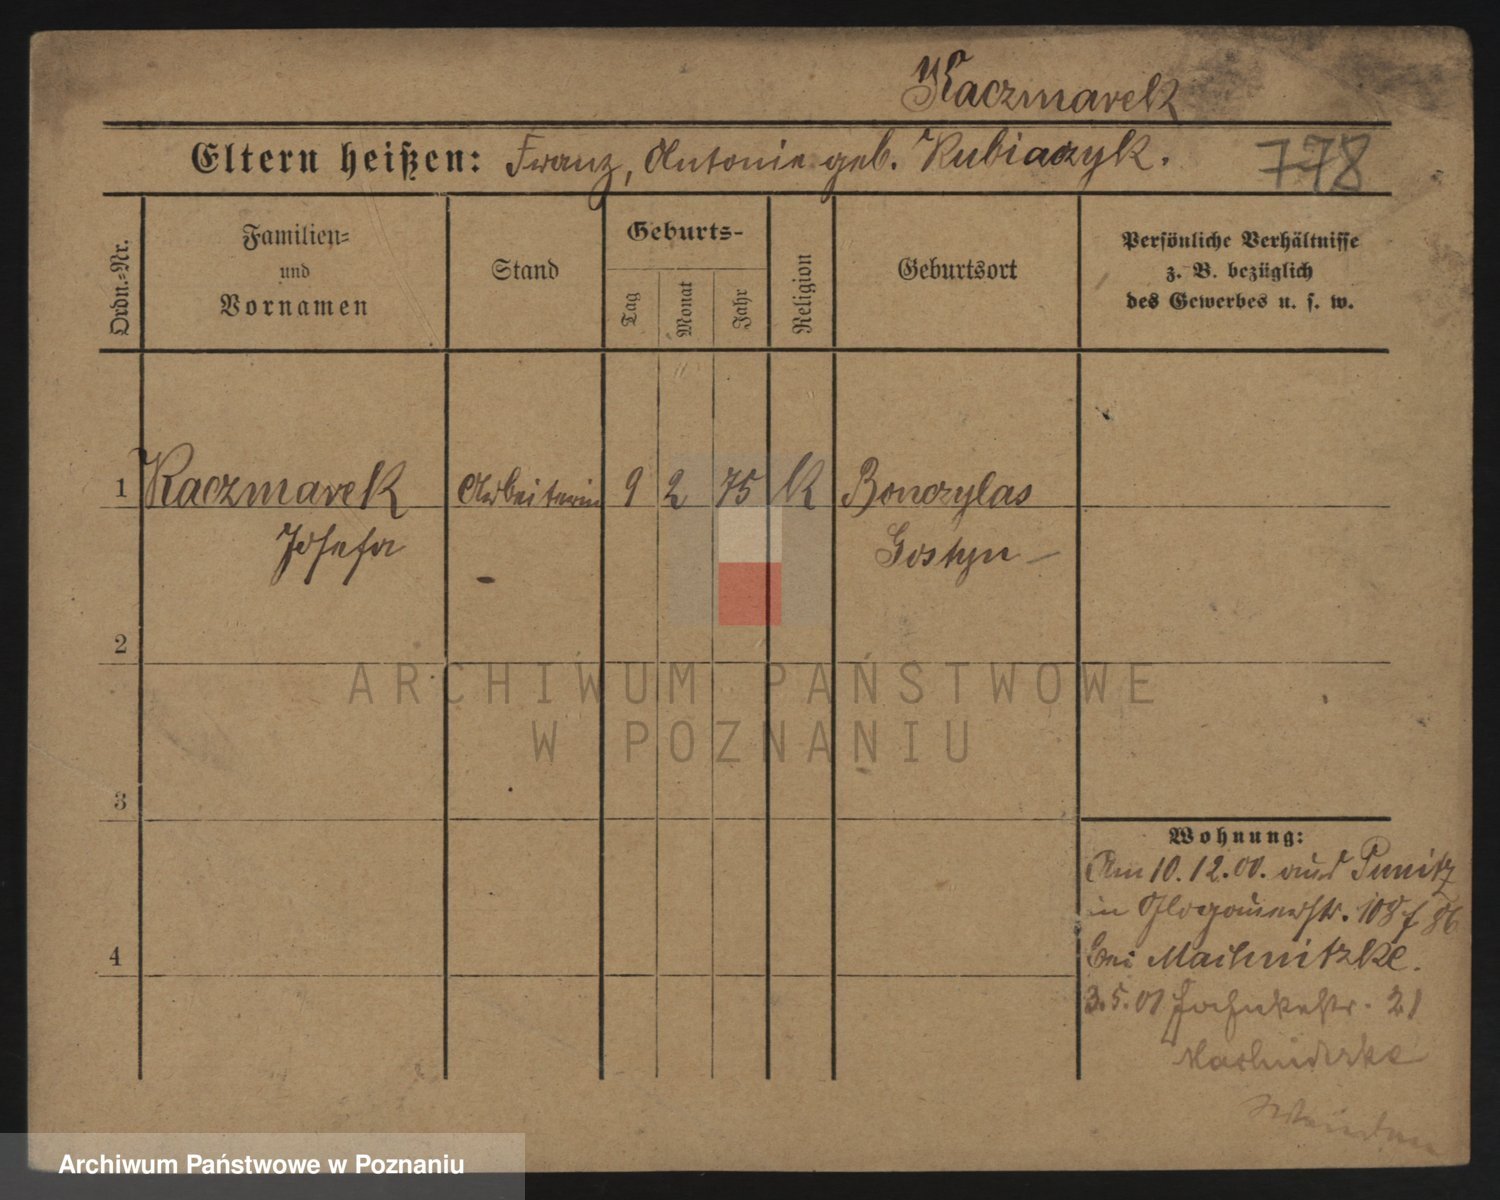 Kaczmarek
Eltern heißen: Franz, Antonie geb. Kubiaczyk.
778
Ordn.=Nr.
Familien=
und
Vornamen
Stand
Geburts-
Tag
Monat
Jahr
Religion
Geburtsort
Persönliche Verhältnisse
z. B. bezüglich
des Gewerbes u. s. w.
1 Kaczmarek Arbeiterin 9 2 75 K Bonczylas
Josefa Gostyn
2
ARCHIWUM PAŃSTWOWE
W POZNANIU
3
Wohnung:
Am 10.12.00. aus Punitz
in Glogauerstr. 108 f 86
4
bei
3.5.01 21
Archiwum Państwowe w Poznaniu